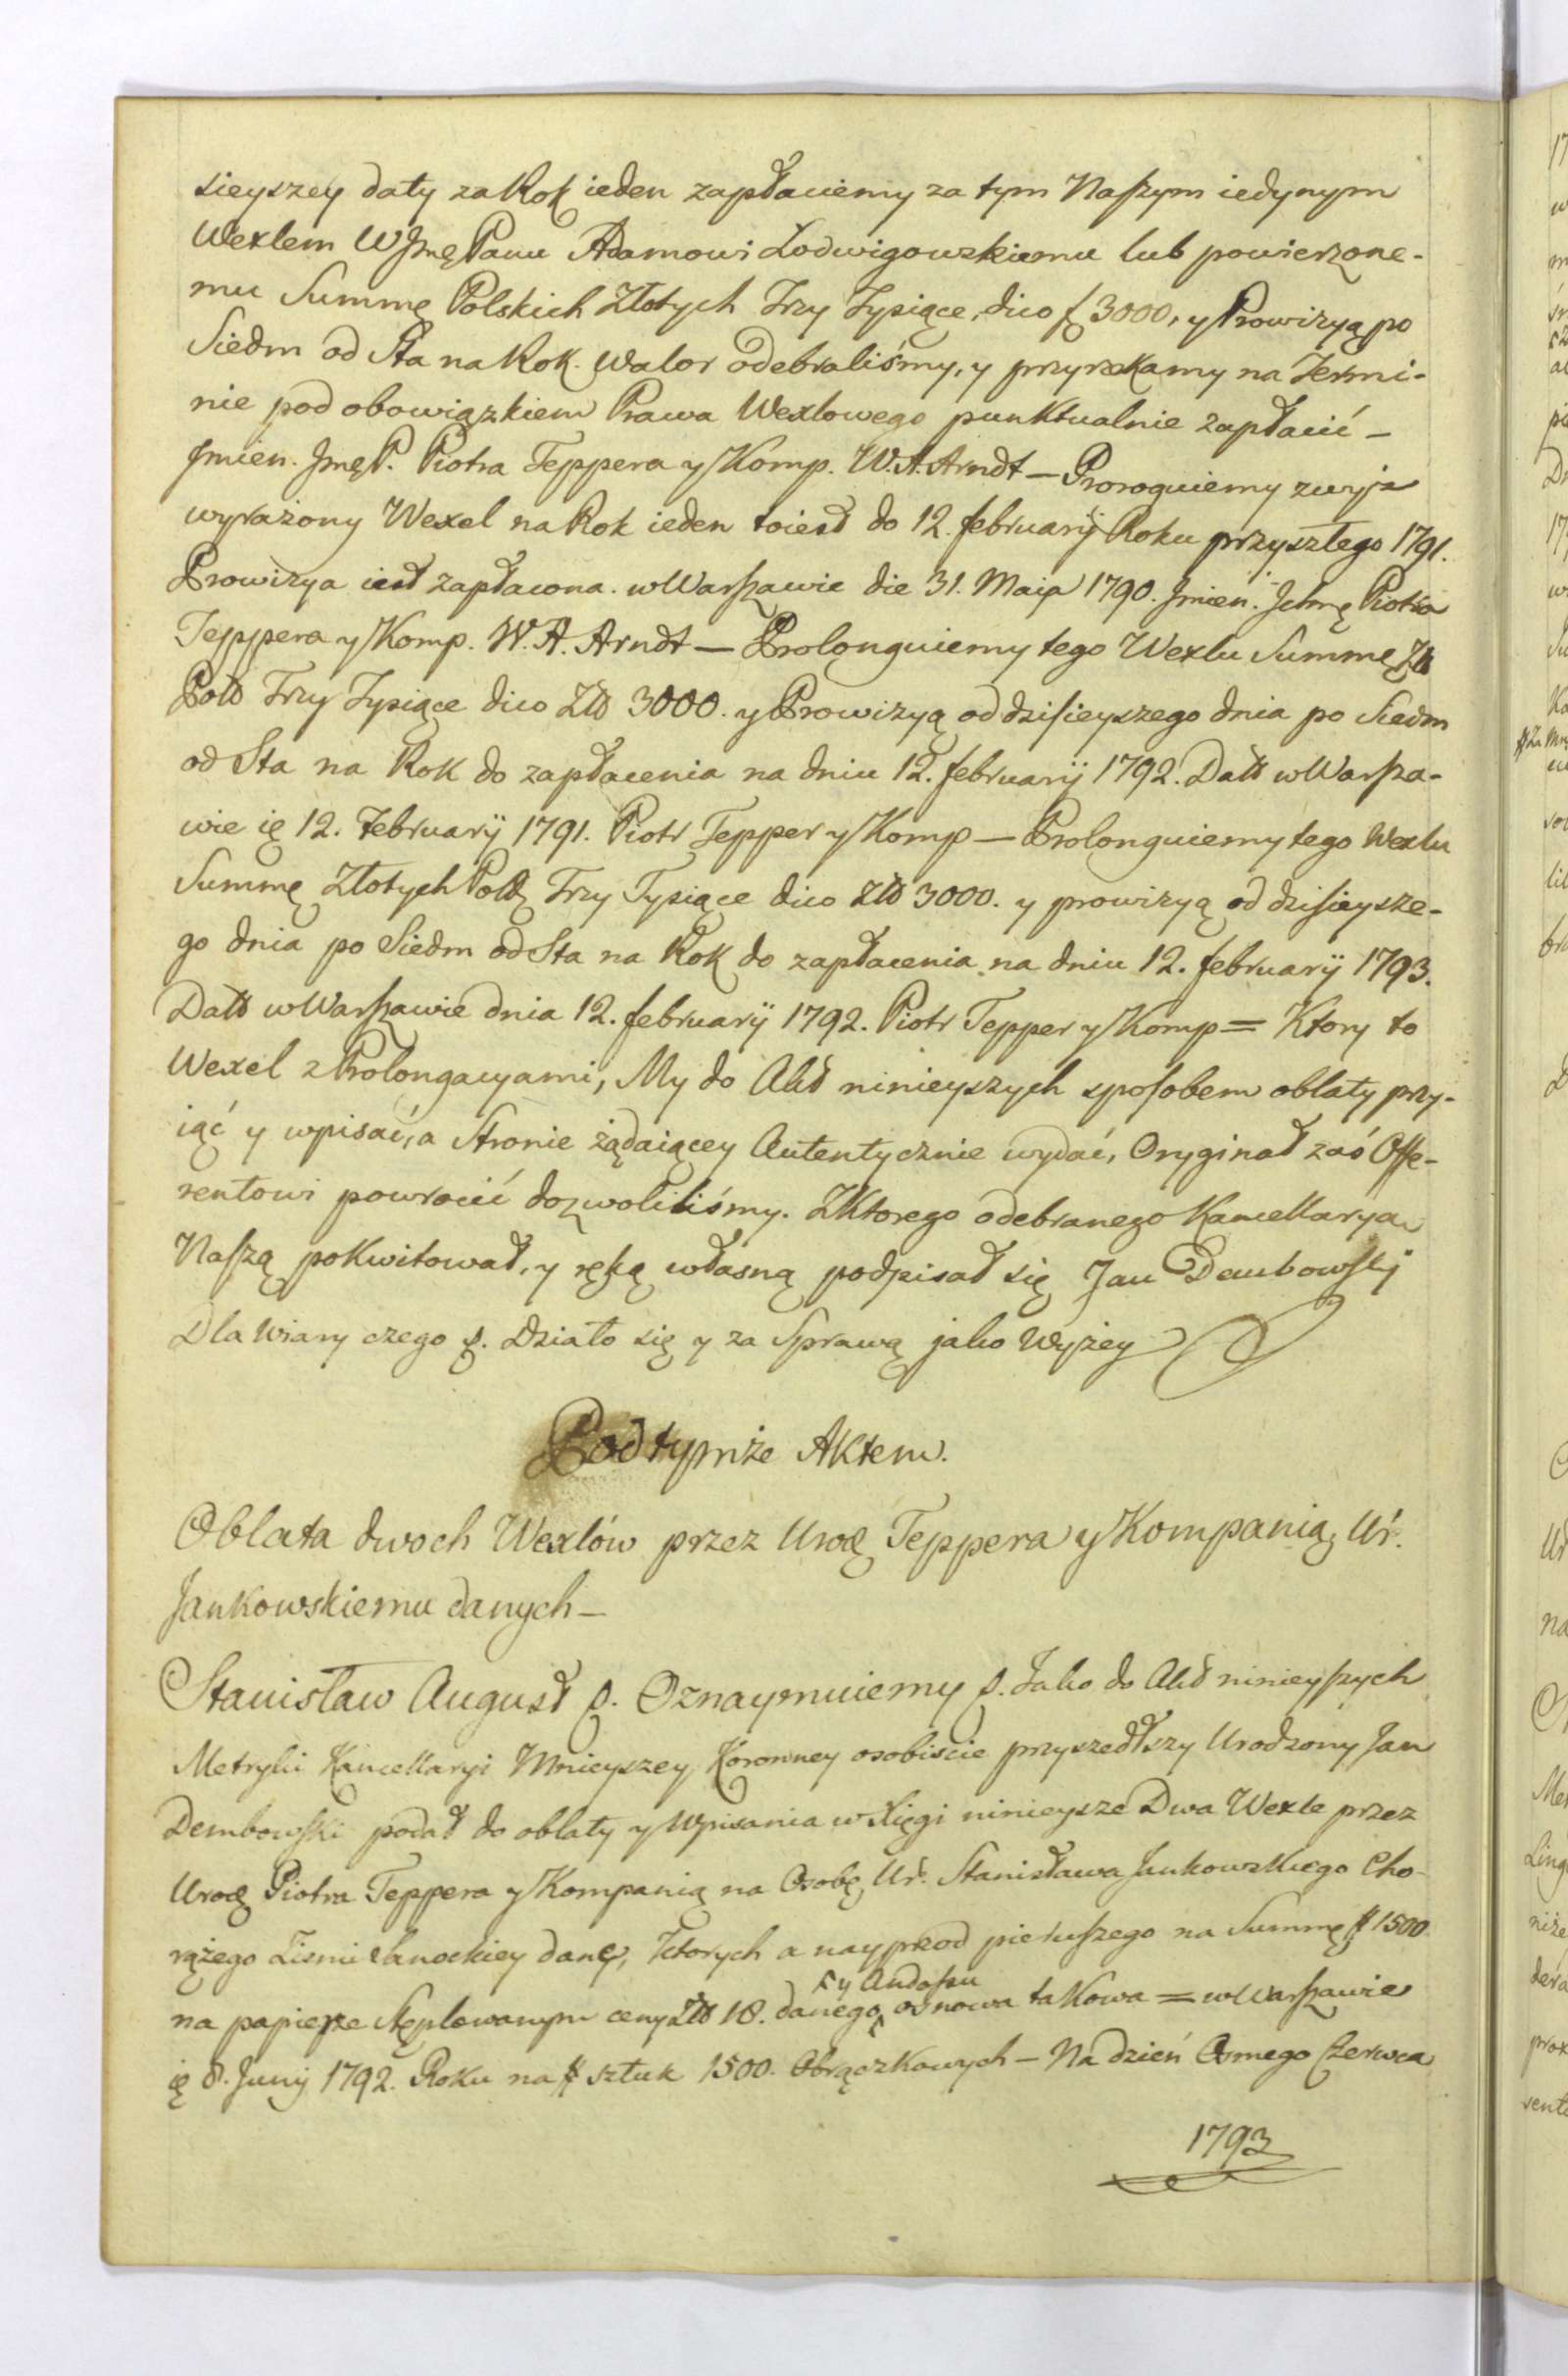 sieyszey daty za Rok ieden zapłaciemy za tym Naszym iedynym
Wexlem WJmę Panu Adamowi Lodwigowskiemu lub powierzone-
mu Summę Polskich Złotych Trzy Tysiące, dico f 3000, y Prowizyą po
Siedm od Sta na Rok. Walor odebraliśmy, y przyrzekamy na Termi-
nie pod obowiązkiem Prawa Wexlowego punktualnie zapłacić –
Jmien. Jmę P. Piotra Teppera y Komp. W. A. Arndt – Proroguiemy zwyż
wyrażony Wexel na Rok ieden toiest do 12. februarij Roku przyszłego 1791.
Prowizya iest zapłacona. w Warszawie die 31. Maja 1790. Jmien. Jchmę Piotra
Teppera y Komp. W. A. Arndt – Prolonguiemy tego Wexlu Summę Zł
Pols Trzy Tysiące dico Złł 3000. y Prowizyą od dzisieyszego dnia po Siedm
od Sta na Rok do zapłacenia na dniu 12. februarij 1792. Datt w Warsza-
wie ię 12. Februarij 1791. Piotr Tepper y Komp – Prolonguiemy tego Wexlu
Summę Złotych Pols Trzy Tysiące dico Złł 3000. y prowizyą od dzisieysze-
go dnia po Siedm od Sta na Rok do zapłacenia na dniu 12. februarij 1793.
Datt w Warszawie dnia 12. februarij 1792. Piotr Tepper y Komp = Ktory to
Wexel z Prolongacyami, My do Akt ninieyszych sposobem oblaty przy-
iąć y wpisać, a Stronie żądaiącey Autentycznie wydać, Oryginał zaś Offe-
rentowi powrocić dozwoliliśmy. Z Ktorego odebranego Kancellarya
Naszą pokwitował, y ręką własną podpisał się Jan Dembowskj
Dla Wiary czego p. Działo się y za Sprawą jako Wyżey
Pod tymże Aktem.
Oblata dwoch Wexlów przez Urodz Teppera y Kompanią, Ur:
Jankowskiemu danych –
Stanisław August p. Oznaymuiemy p. Jako do Akt ninieyszych
Metryki Kancellaryi Mnieyszey Koronney osobiście przyszedłszy Urodzony Jan
Dembowski podał do oblaty y Wpisania w Xięgi ninieysze Dwa Wexle przez
Urodz Piotra Teppera y Kompanią na Osobę Ur: Stanisława Jankowskiego Cho-
rążego Ziemi Sanockiey dane, Ktorych a nayprzod pierwszego na Summę # 1500
na papierze Stęplowanym ceny Złł 18. danego, osnowa takowa = w Warszawie
ię 8. Junij 1792. Roku na # sztuk 1500. Obrączkowych – Na dzień Osmego Czerwca
1793